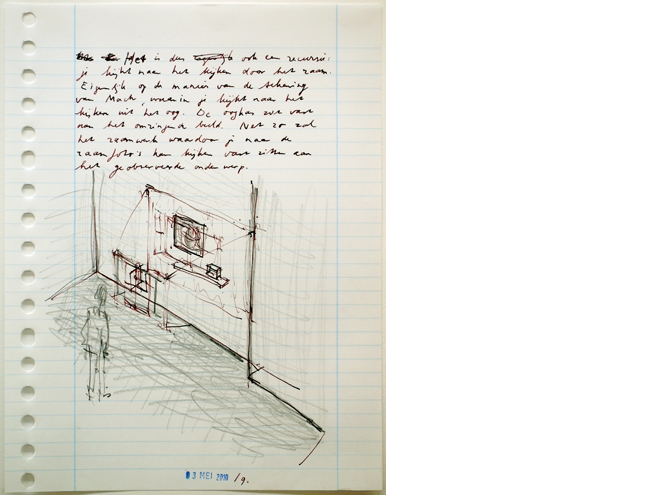 Het is dus ook een recursie:
je kijkt naar het kijken door het raam.
Eigenlijk op de manier van de tekening
van Mach, waarin je kijkt naar het
kijken uit het oog. De oogkas zit vast
aan het omringende beeld. Net zo zal
het raamwerk waardoor je naar de
raamfoto's kan kijken vast zitten aan
het geobserveerde onderwerp.
03 MEI 2010 /9.